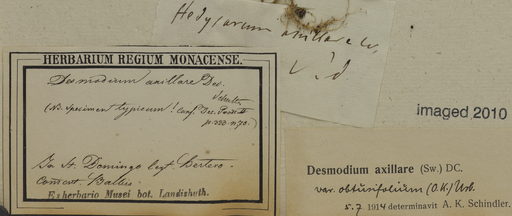 Hedysarum axillare Sw.
v. d.
HERBARIUM REGIUM MONACENSE.
Desmodium axillare Dec.
(NB. Specimen typicum! Conf.
In St. Domingo leg. Bertero.
Comm. Balbis.
Ex herbario Musei bot. Landishuth.
imaged 2010
Desmodium axillare (Sw.) DC.
var. obtusifolium (O.K.) Urb.
5. 7. 1914 determinavit A. K. Schindler.